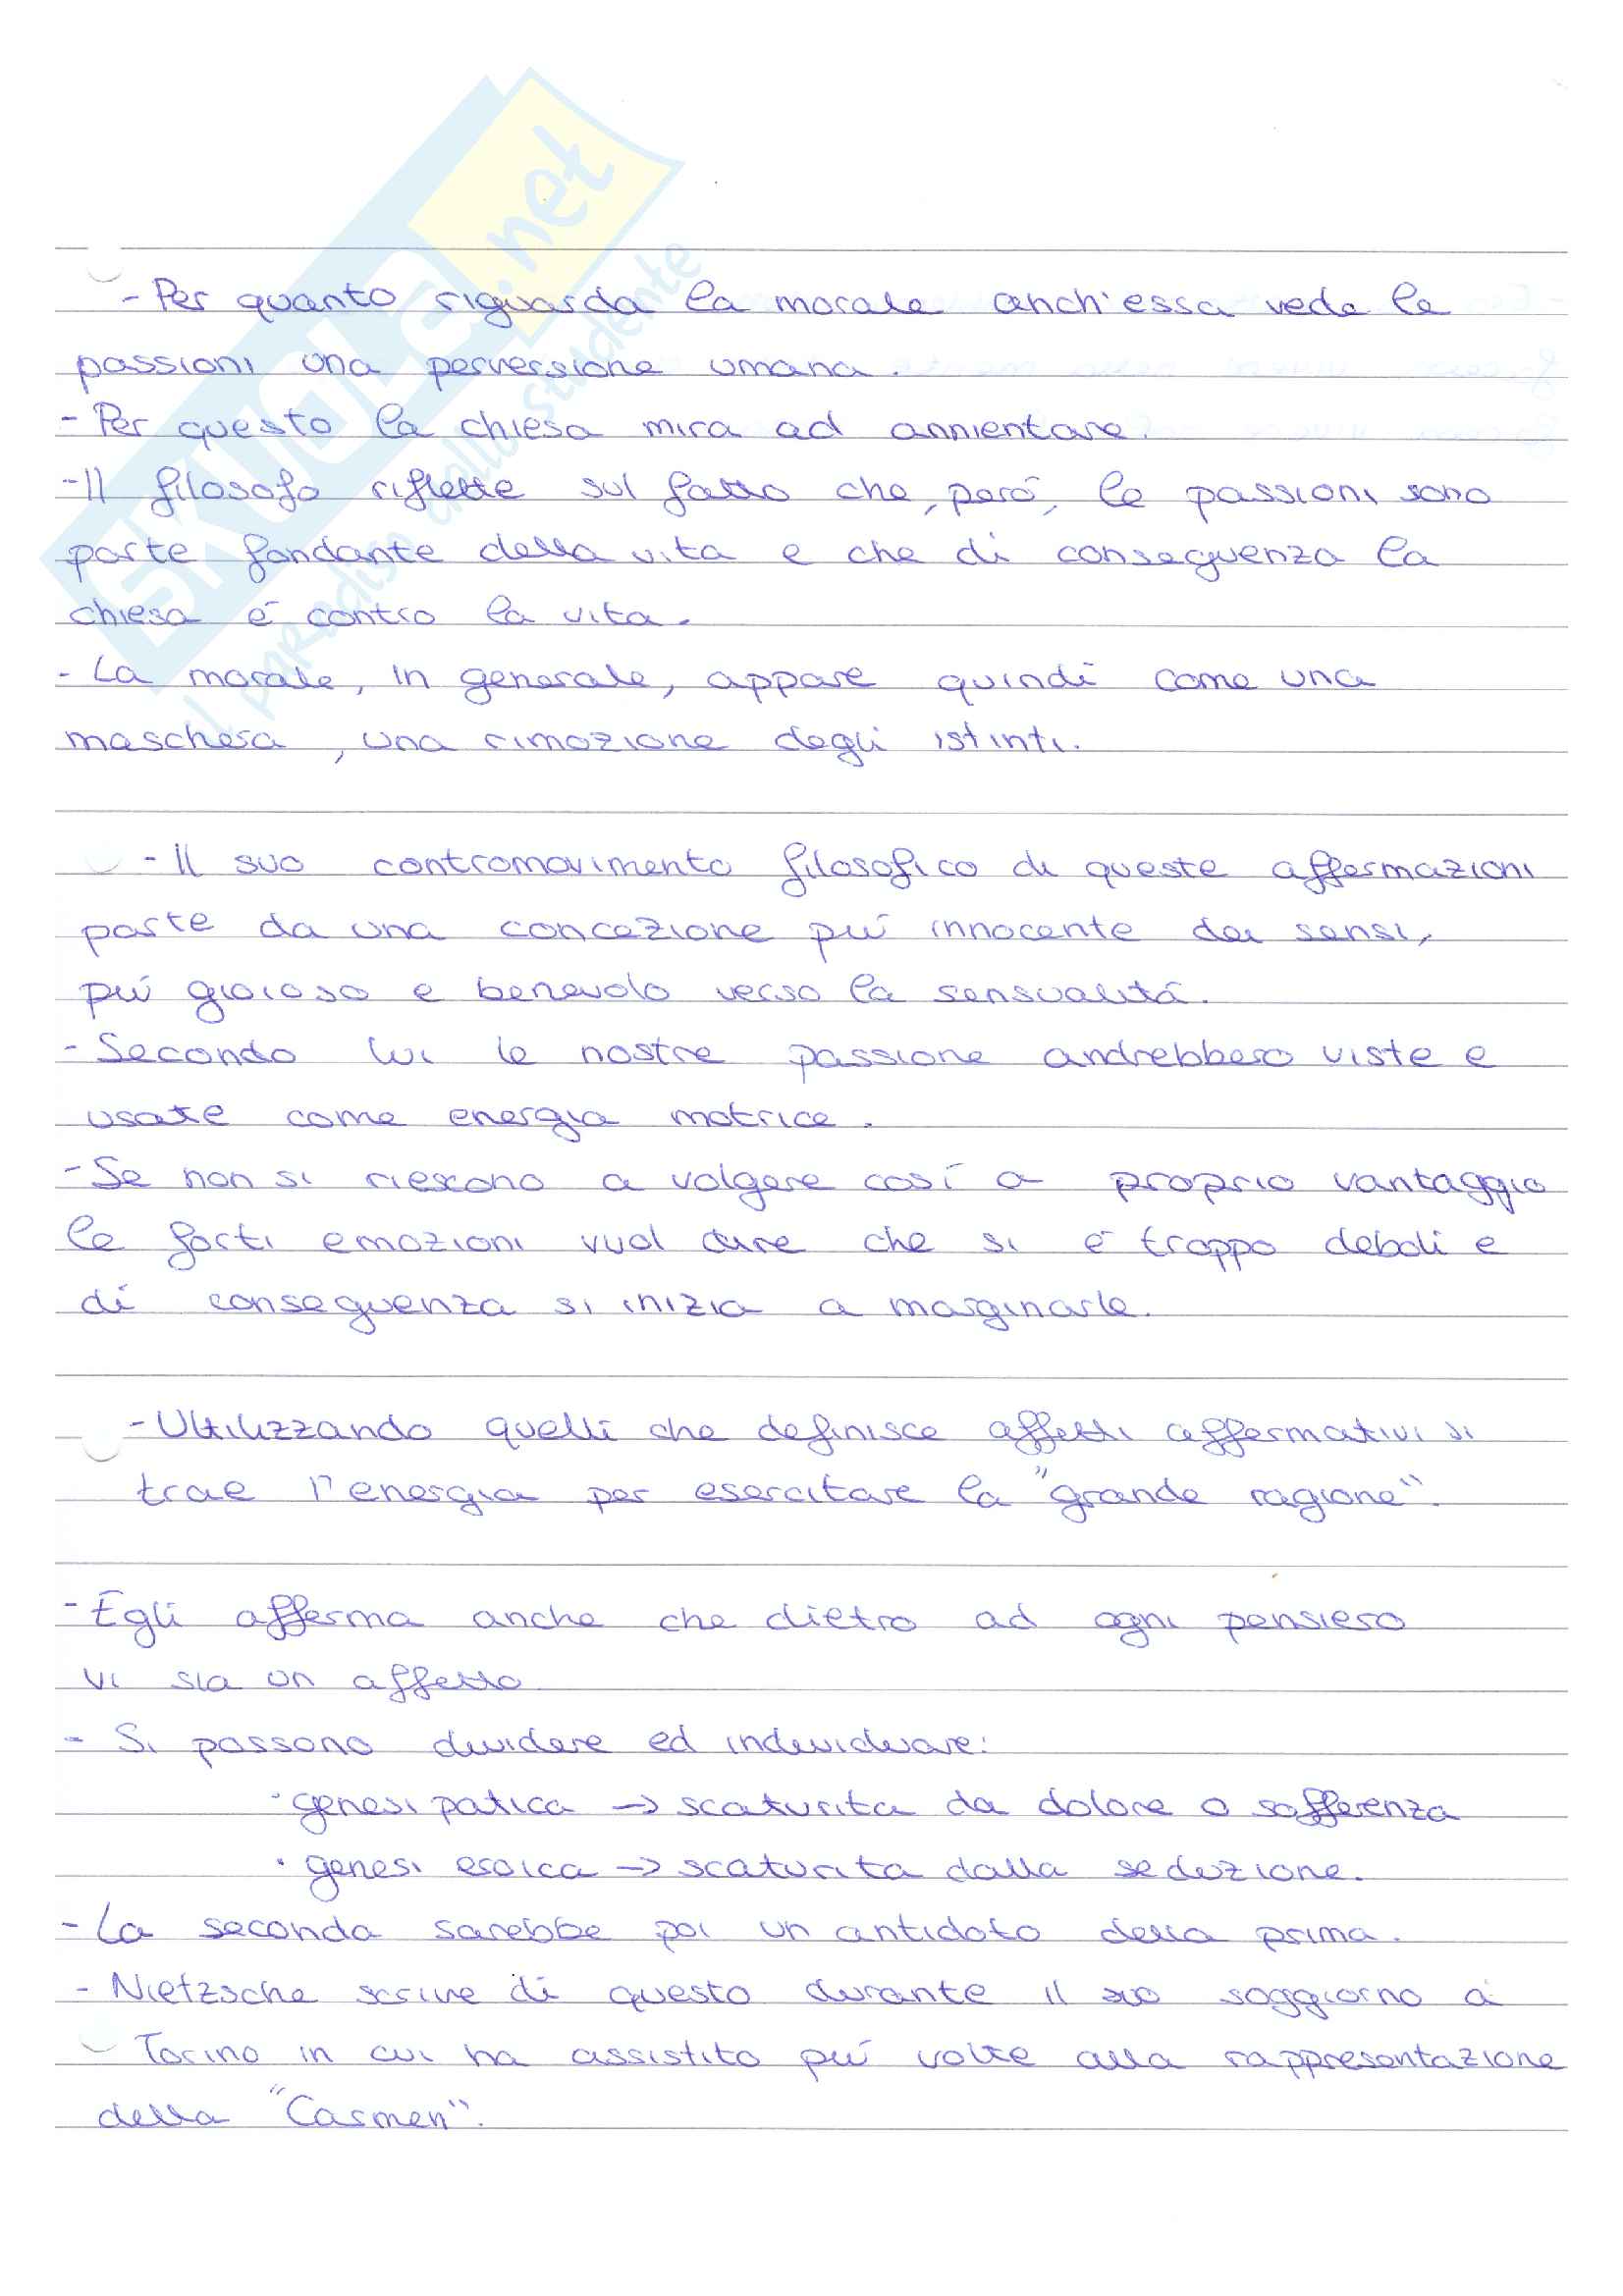 SKUOLA.net
il paradiso dello studente
- Per quanto riguarda la morale anch'essa vede le
passioni una perversione umana.
- Per questo la chiesa mira ad annientare.
- Il filosofo riflette sul fatto che, però, le passioni sono
parte fondante della vita e che di conseguenza la
chiesa è contro la vita.
- La morale, in generale, appare quindi come una
maschera, una rimozione degli istinti.
- Il suo contromovimento filosofico di queste affermazioni
parte da una concezione più innocente dei sensi,
più gioioso e benevolo verso la sensualità.
- Secondo lui le nostre passione andrebbero viste e
usate come energia motrice.
- Se non si riescono a volgere così a proprio vantaggio
le forti emozioni vuol dire che si è troppo deboli e
di conseguenza si inizia a marginarle.
- Ultilizzando quelli che definisce affetti affermativi si
trae l'energia per esercitare la "grande ragione".
- Egli afferma anche che dietro ad ogni pensiero
vi sia un affetto
- Si possono dividere ed individuare:
· genesi patica → scaturita da dolore o sofferenza
· genesi eroica → scaturita dalla seduzione.
- La seconda sarebbe poi un antidoto della prima.
- Nietzsche scrive di questo durante il suo soggiorno a
Torino in cui ha assistito più volte alla rappresentazione
della "Carmen".